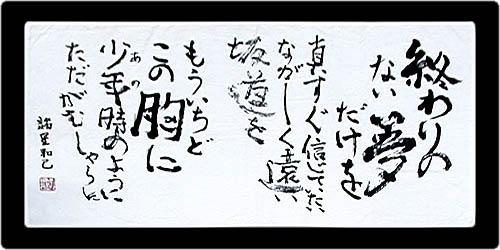 終わりの
ない夢
だけを
真すぐ信じてた
遠い
坂道を
もういちど
この胸に
少年時のように
あの
ただがむしゃらに
諸星和己